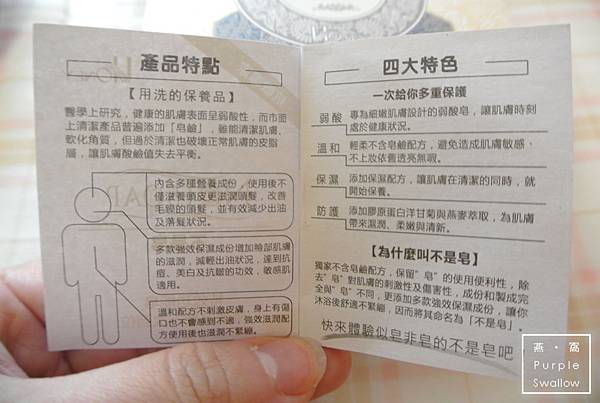 產品特點
【用洗的保養品】
醫學上研究，健康的肌膚表面呈弱酸性，而市面
上清潔產品普遍添加「皂鹼」，雖能清潔肌膚、
軟化角質，但過於清潔也破壞正常肌膚的皮脂
層，讓肌膚酸鹼值失去平衡。
內含多種營養成份，使用後不
僅滋養頭皮更滋潤頭髮，改善
毛躁的頭髮，並有效減少出油
及落髮狀況。
多款強效保濕成份增加臉部肌膚
的滋潤，減輕出油狀況，達到抗
痘、美白及抗皺的功效，敏感肌
適用。
溫和配方不刺激皮膚，身上有傷
口也不會感到不適，強效滋潤配
方使用後也滋潤不緊繃。
四大特色
一次給你多重保護
弱酸 專為細嫩肌膚設計的弱酸皂，讓肌膚時刻
處於健康狀況。
溫和 輕柔不含皂鹼配方，避免造成肌膚敏感，
不上妝依舊透亮無瑕。
保濕 添加保濕配方，讓肌膚在清潔的同時，就
開始保養。
防護 添加膠原蛋白洋甘菊與燕麥萃取，為肌膚
帶來濕潤、柔嫩與清新。
【為什麼叫不是皂】
獨家不含皂鹼配方，保留"皂"的使用便利性，除
去"皂"對肌膚的刺激性及傷害性，成份和製成完
全與"皂"不同，更添加多款強效保濕成份，讓你
沐浴後舒適不緊繃，因而將其命名為「不是皂」。
快來體驗似皂非皂的不是皂吧
燕·窩
Purple
Swallow